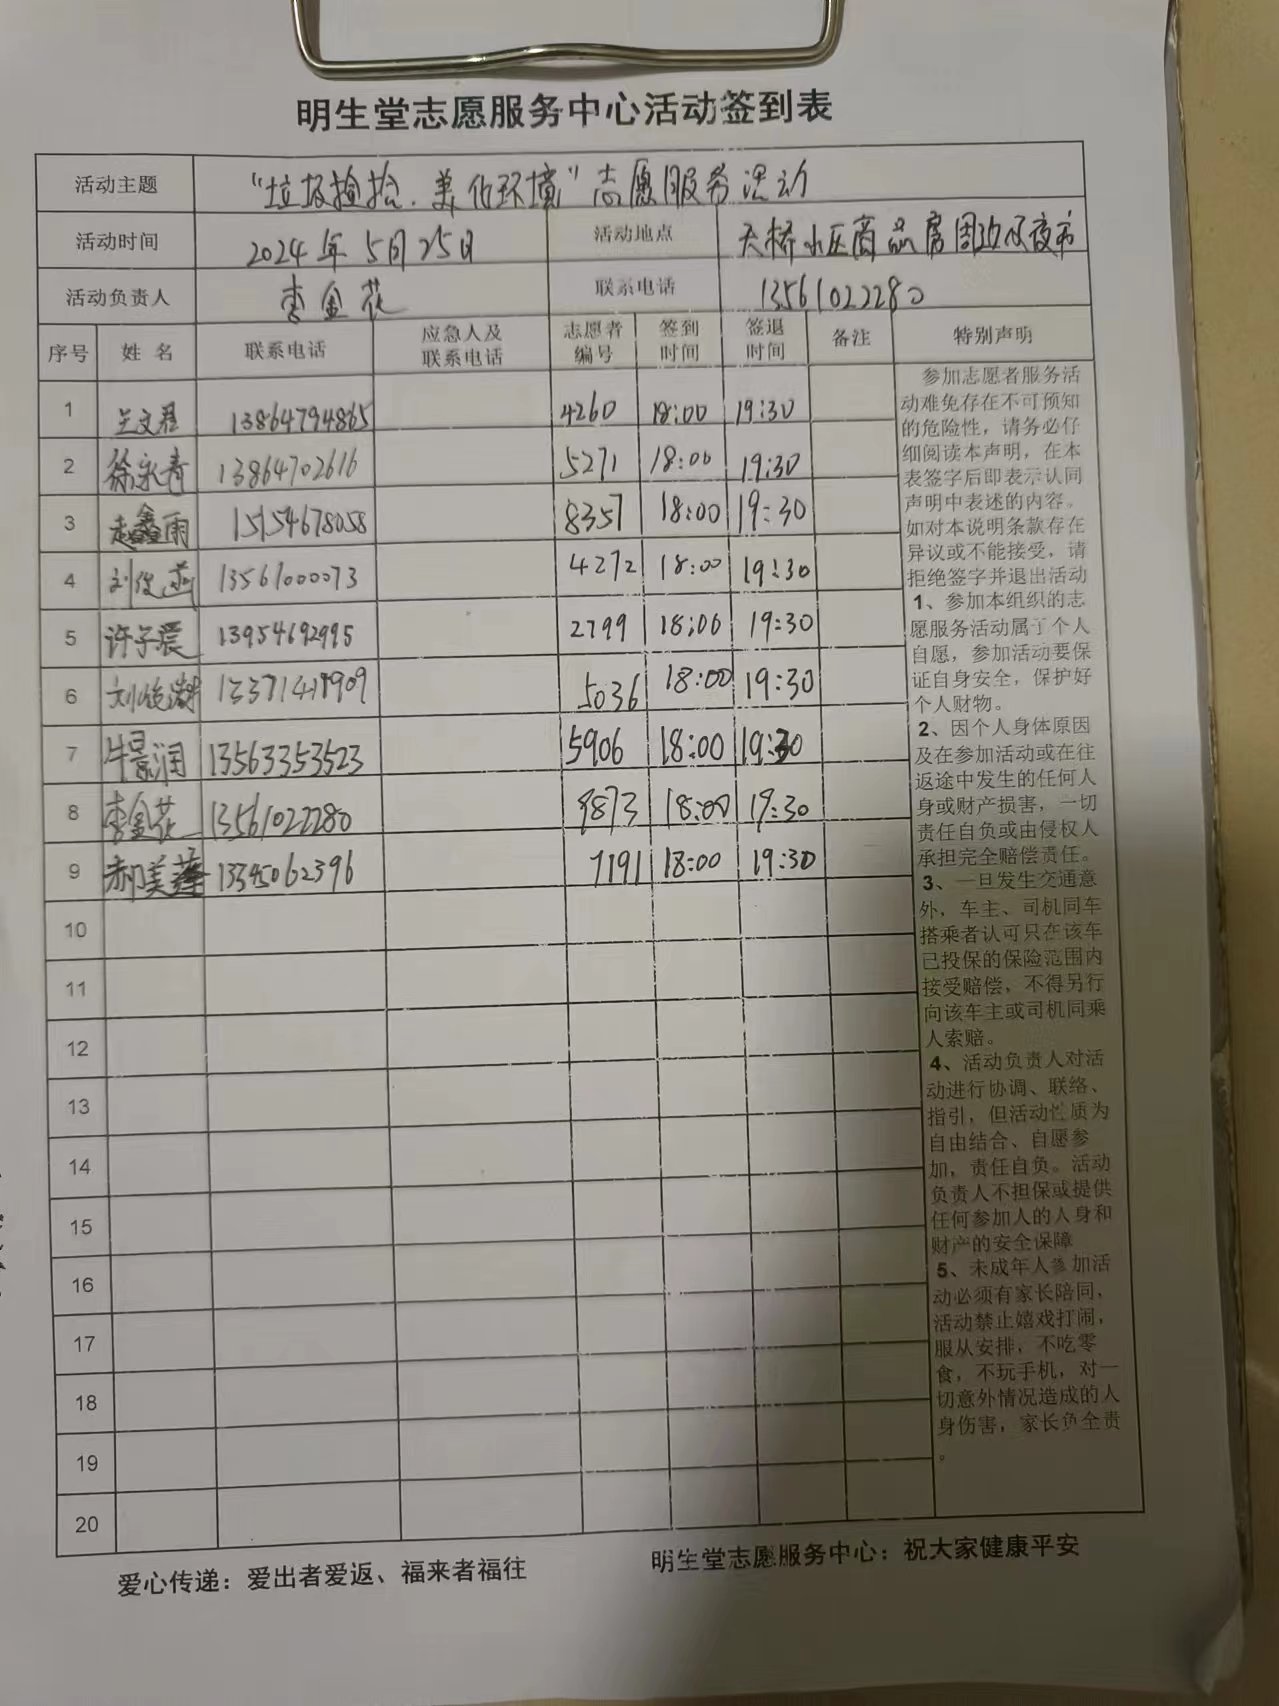 明生堂志愿服务中心活动签到表
活动主题 “垃圾捡拾.美化环境”志愿服务活动
活动时间 2024年5月25日 活动地点 天桥小区商品房周边及夜市
活动负责人 李金花 联系电话 13561022280
序号 姓名 联系电话 应急人及联系电话 志愿者编号 签到时间 签退时间 备注 特别声明
1 兰文君 13864794865 4260 18:00 19:30
2 徐永青 13864702616 5271 18:00 19:30
3 赵鑫雨 15154678058 8357 18:00 19:30
4 刘俊 13561000073 4272 18:00 19:30
5 许子晨 13954692995 2799 18:00 19:30
6 刘俊 18:00 19:30 5036
7 牛景润 13563353523 5906 18:00 19:30
8 李金花 13561022280 9873 18:00 19:30
9 郝美莲 13345062396 7191 18:00 19:30
10
11
12
13
14
15
16
17
18
19
20
参加志愿者服务活
动难免存在不可预知
的危险性，请务必仔
细阅读本声明，在本
表签字后即表示认同
声明中表述的内容。
如对本说明条款存在
异议或不能接受，请
拒绝签字并退出活动
1、参加本组织的志
愿服务活动属于个人
自愿，参加活动要保
证自身安全，保护好
个人财物。
2、因个人身体原因
及在参加活动或在往
返途中发生的任何人
身或财产损害，一切
责任自负或由侵权人
承担完全赔偿责任。
3、一旦发生交通意
外，车主、司机同车
搭乘者认可只在该车
已投保的保险范围内
接受赔偿，不得另行
向该车主或司机同乘
人索赔。
4、活动负责人对活
动进行协调、联络、
指引，但活动性质为
自由结合、自愿参
加，责任自负。活动
负责人不担保或提供
任何参加人的人身和
财产的安全保障
5、未成年人参加活
动必须有家长陪同，
活动禁止嬉戏打闹，
服从安排，不吃零
食，不玩手机，对一
切意外情况造成的人
身伤害，家长负全责
。
爱心传递：爱出者爱返、福来者福往
明生堂志愿服务中心：祝大家健康平安